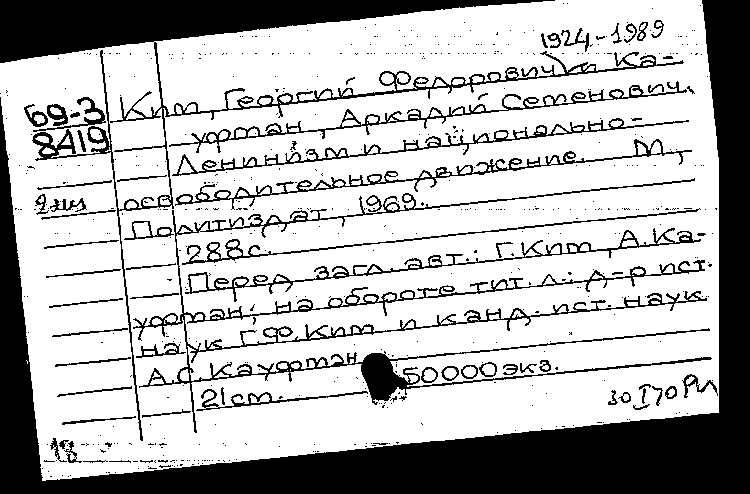 1924-1989
Б9-3
8419
Ким, Георгий Федорович и Ка-
уфман, Аркадий Семенович.
Ленинизм и национально-
освободительное движение. М.,
Политиздат, 1969.
288с.
Перед загл. авт.: Г.Ким, А.Ка-
уфман; на обороте тит. л.: д-р ист.
наук Г.Ф.Ким и канд. ист. наук
А.С.Кауфман
21см. 50000экз.
18